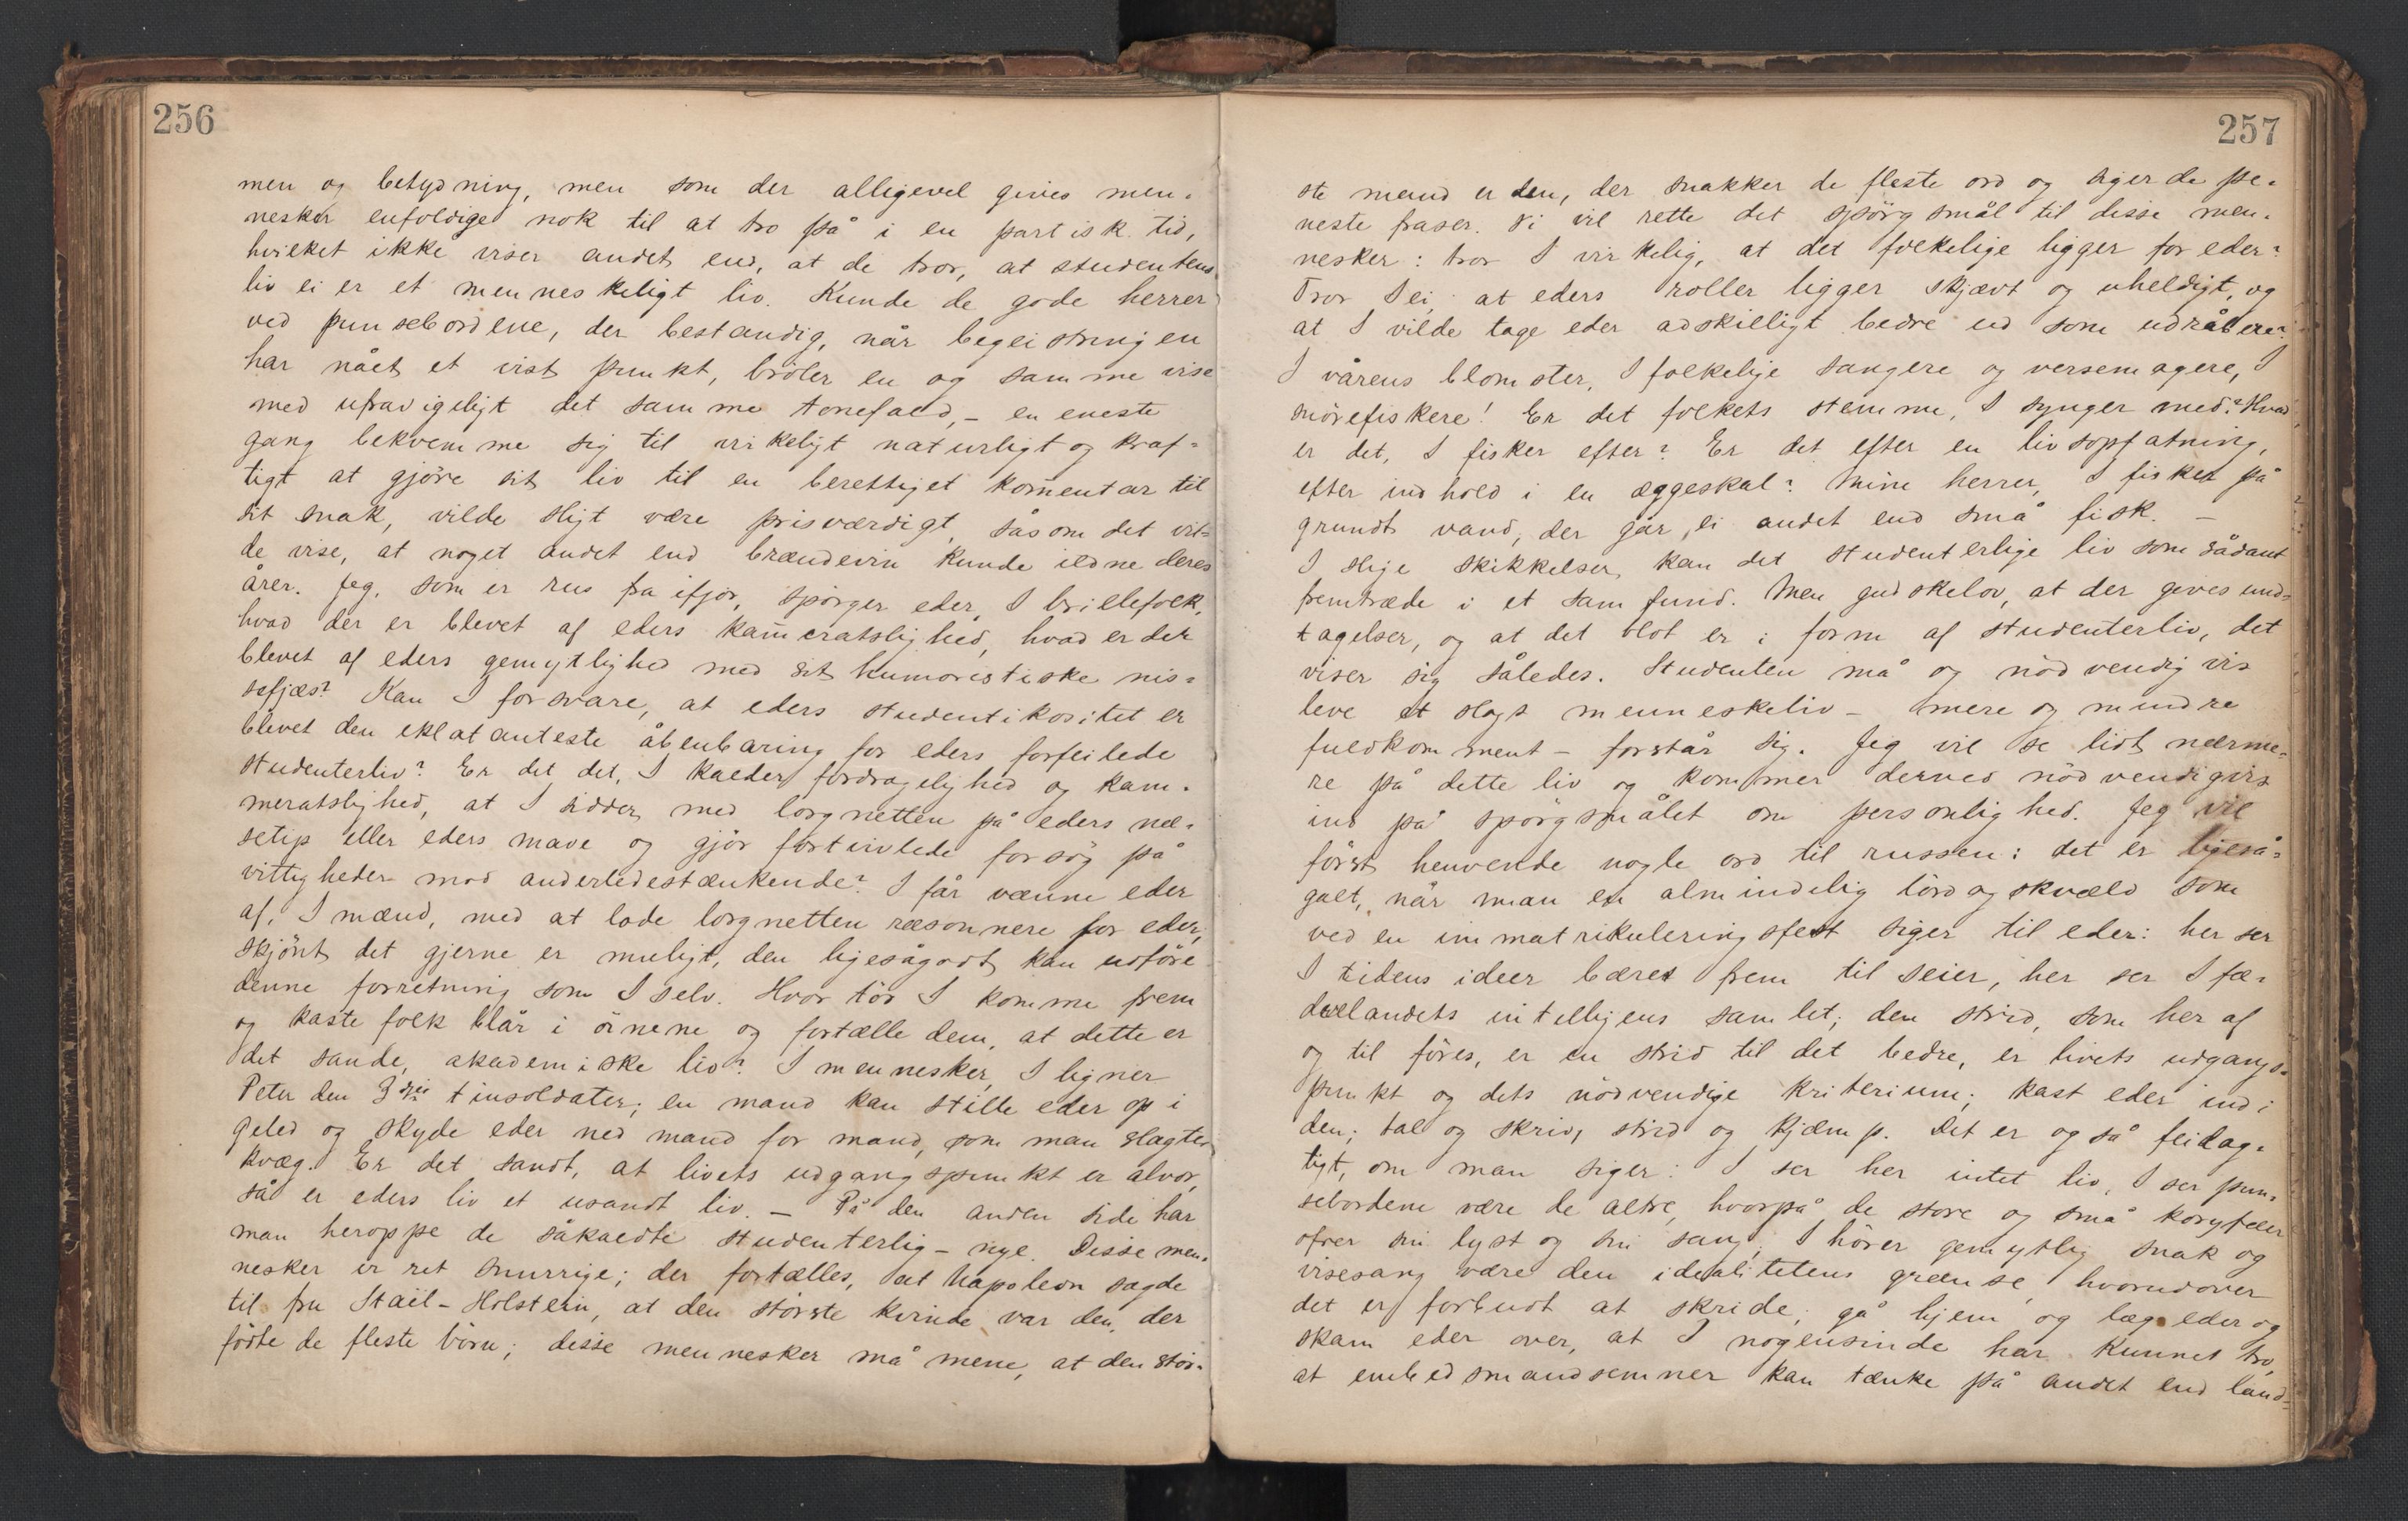 256
men og betydning, men som der alligevel gives men-
nesker enfoldige nok til at tro på i en partisk tid,
hvilket ikke viser andet end, at de tror, at studentens
liv ei er et menneskeligt liv. Kunde de gode herrer
ved punsebordene, der bestandig, når begeistringen
har nået et vist punkt, bröler en og samme vise
med ufravigeligt det samme tonefald, - en eneste
gang bekvemme sig til virkeligt naturligt og kraf-
tigt at gjöre sit liv til en berettiget komentar til
sit snak, vilde sligt være prisværdigt, såsom det vil-
de vise, at noget andet end brændevin kunde ildne deres
årer. Jeg, som er rus fra ifjor, spörger eder, I brillefolk,
hvad der er blevet af eders kameratslighed, hvad er der
blevet af eders gemytlighed med sit humoristiske nis-
sefjæs? Kan I forsvare, at eders studentikositet er
blevet den eklatanteste åbenbaring for eders forfeilede
studenterliv? Er det det, I kalder fordragelighed og kam-
meratslighed, at I sidder med lorgnetten på eders næ-
setip eller eders mave og gjör fortvivlede forsög på
vittigheder mod anderledestænkende? I får vænne eder
af, I mænd, med at lade lorgnetten ræsonnere for eder,
skjönt det gjerne er muligt, den ligesågodt kan udföre
denne forretning som I selv. Hvor tör I komme frem
og kaste folk blår i öinene og fortælle dem, at dette er
det sande, akademiske liv? I mennesker, I ligner
Peter den 3dies tinsoldater; en mand kan stille eder op i
geled og skyde eder ned mand for mand, som man slagter
kvæg. Er det sandt, at livets udgangspunkt er alvor,
så er eders liv et usandt liv. - På den anden side har
man heroppe de såkaldte studenterlig-nye. Disse men-
nesker er ret snurrige; der fortælles, at Napoleon sagde
til fru Staël-Holstein, at den störste kvinde var den, der
födte de fleste börn; disse mennesker må mene, at den stör-
257
ste mand er den, der snakker de fleste ord og siger de pe-
neste fraser. Vi vil rette det spörgsmål til disse men-
nesker: tror I virkelig, at det folkelige ligger for eder?
Tror I ei, at eders roller ligger skjævt og uheldigt, og
at I vilde tage eder adskilligt bedre ud som udråbere?
I vårens blomster, I folkelige sangere og versemagere, I
snörefiskere! Er det folkets stemme, I synger med? Hvad
er det, I fisker efter? Er det efter en livsopfatning,
efter indhold i en æggeskal? Mine herrer, I fisker på
grundt vand, der går ei andet end små fisk. -
I slige skikkelser kan det studenterlige liv som sådant
fremtræde i et samfund. Men gudskelov, at der gives und-
tagelser, og at det blot er i form af studenterliv, det
viser sig således. Studenten må og nödvendigvis
leve et slags menneskeliv - mere og mindre
fuldkomment - forstår sig. Jeg vil se lidt nærme-
re på dette liv og kommer derved nödvendigvis
ind på spörgsmålet om personlighed. Jeg vil
först henvende nogle ord til russen: det er ligeså-
galt, når man en almindelig lördagskvæld som
ved en immatrikuleringsfest siger til eder: her ser
I tidens ideer bæres frem til seier, her ser I fæ-
drelandets intelligens samlet; den strid, som her af
og til föres, er en strid til det bedre, er livets udgangs-
punkt og dets nödvendige kriterium; kast eder ind i
den; tal og skriv, strid og kjæmp. Det er også feilag-
tigt, om man siger: I ser her intet liv, I ser pun-
sebordene være de altre, hvorpå de store og små koryfæer
ofrer sin lyst og sin sang; I hörer gemytlig snak og
visesang være den idealitetens grænse, hvorudover
det er forbudt at skride; gå hjem og læg eder og
skam eder over, at I nogensinde har kunnet tro,
at embedsmandsemner kan tænke på andet end land-